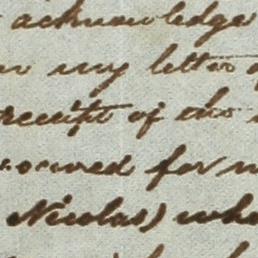 acknowledge
my letter
receipt of the
for
Nicolas) who